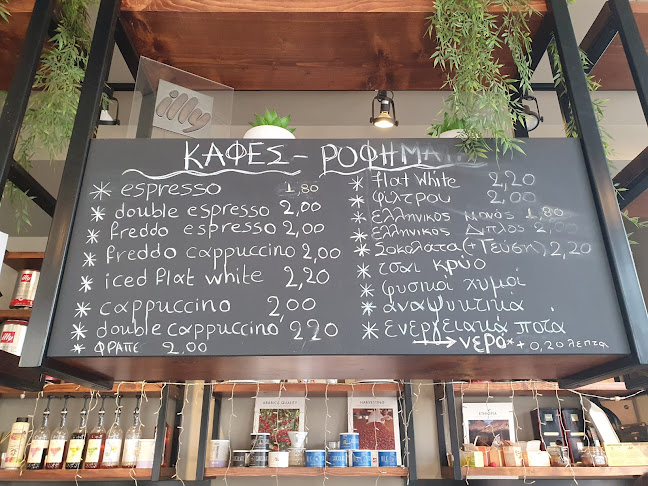 illy
ΚΑΦΕΣ - ΡΟΦΗΜΑ
* espresso 1,80
* double espresso 2,00
* freddo espresso 2,00
* freddo cappuccino 2,00
* iced flat white 2,20
* cappuccino 2,00
* double cappuccino 2,20
* ΦΡΑΠΕ 2,00
* flat white 2,20
* φίλτρου 2,00
* ελληνικος Μονός 1,80
* ελληνικος Διπλος 2,00
* Σοκολατα (+Γεύση) 2,20
* τσαι κρύο
* φυσικοι χυμοί
* αναψυκτικα
* ενεργειακά ποτα
→ νερό* + 0,20 λεπτα
illy
illy
ETHIOPIA